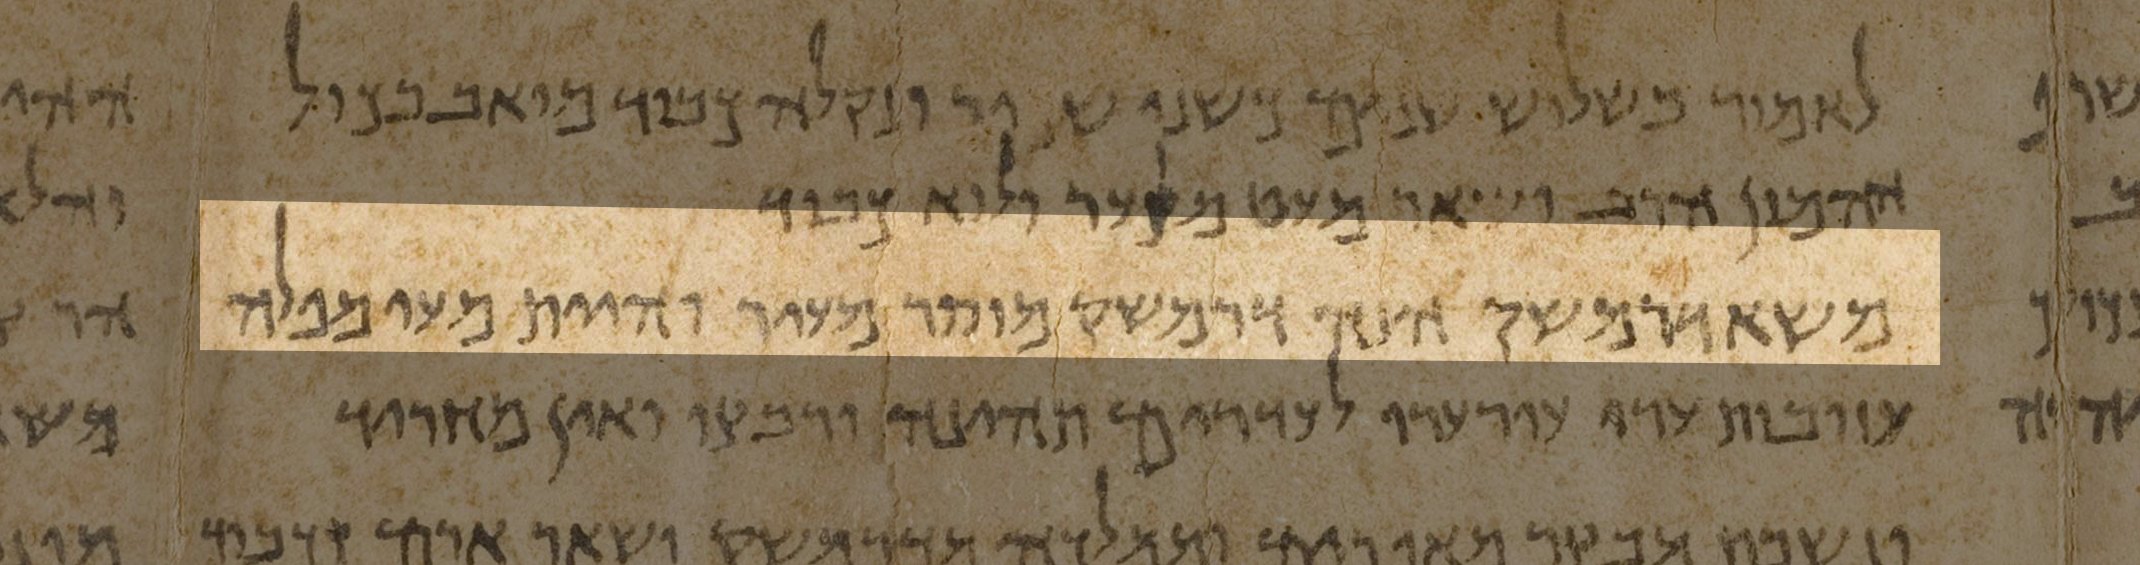 לאמור בשלוש שנים כשני שכיר ונקלה כבוד מואב בכול
ההמון הרב ושאר מעט מזער ולוא כבוד
משא דרמשק הנה דרמשק מוסר מעיר והיית מעי מפלה
עזובות ערי עורערו לעדרים תהיינה ורבצו ואין מחריד
ונשבת מבצר מאפרים וממלכה מדרמשק ושאר ארם